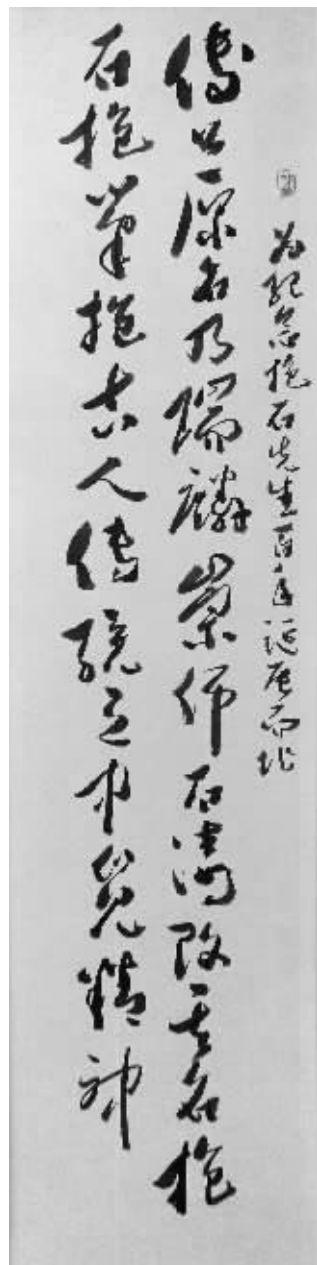 为纪念抱石先生百年诞辰而作
傅公原名乃瑞麟崇师石濤改其名抱
石抱筆抱古人傳統之中覓精神